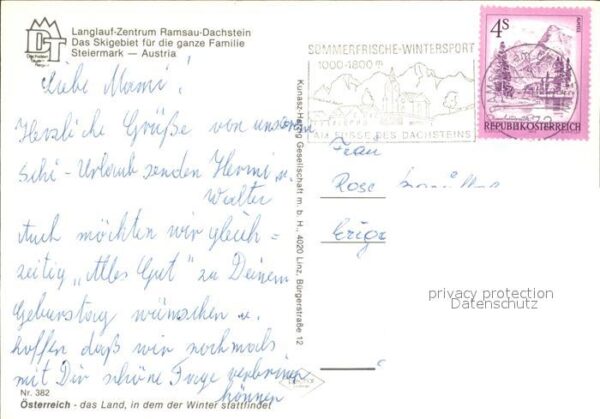 Langlauf-Zentrum Ramsau-Dachstein
Das Skigebiet für die ganze Familie
Steiermark — Austria
Liebe Mami!
Herzliche Grüße von unserem
Schi-Urlaub senden Hermi u.
Walter
Auch möchten wir gleich=
zeitig „Alles Gut" zu Deinem
Geburtstag wünschen u.
hoffen daß wir nochmals
mit Dir schöne Tage verbringen
können
Nr. 382
Österreich - das Land, in dem der Winter stattfindet
Kunasz-Herzog Gesellschaft m. b. H., 4020 Linz, Bürgerstraße 12
SOMMERFRISCHE-WINTERSPORT
1000-1800 m
AM FUSSE DES DACHSTEINS
4S
REPUBLIK ÖSTERREICH
Frau
Rose
privacy protection
Datenschutz